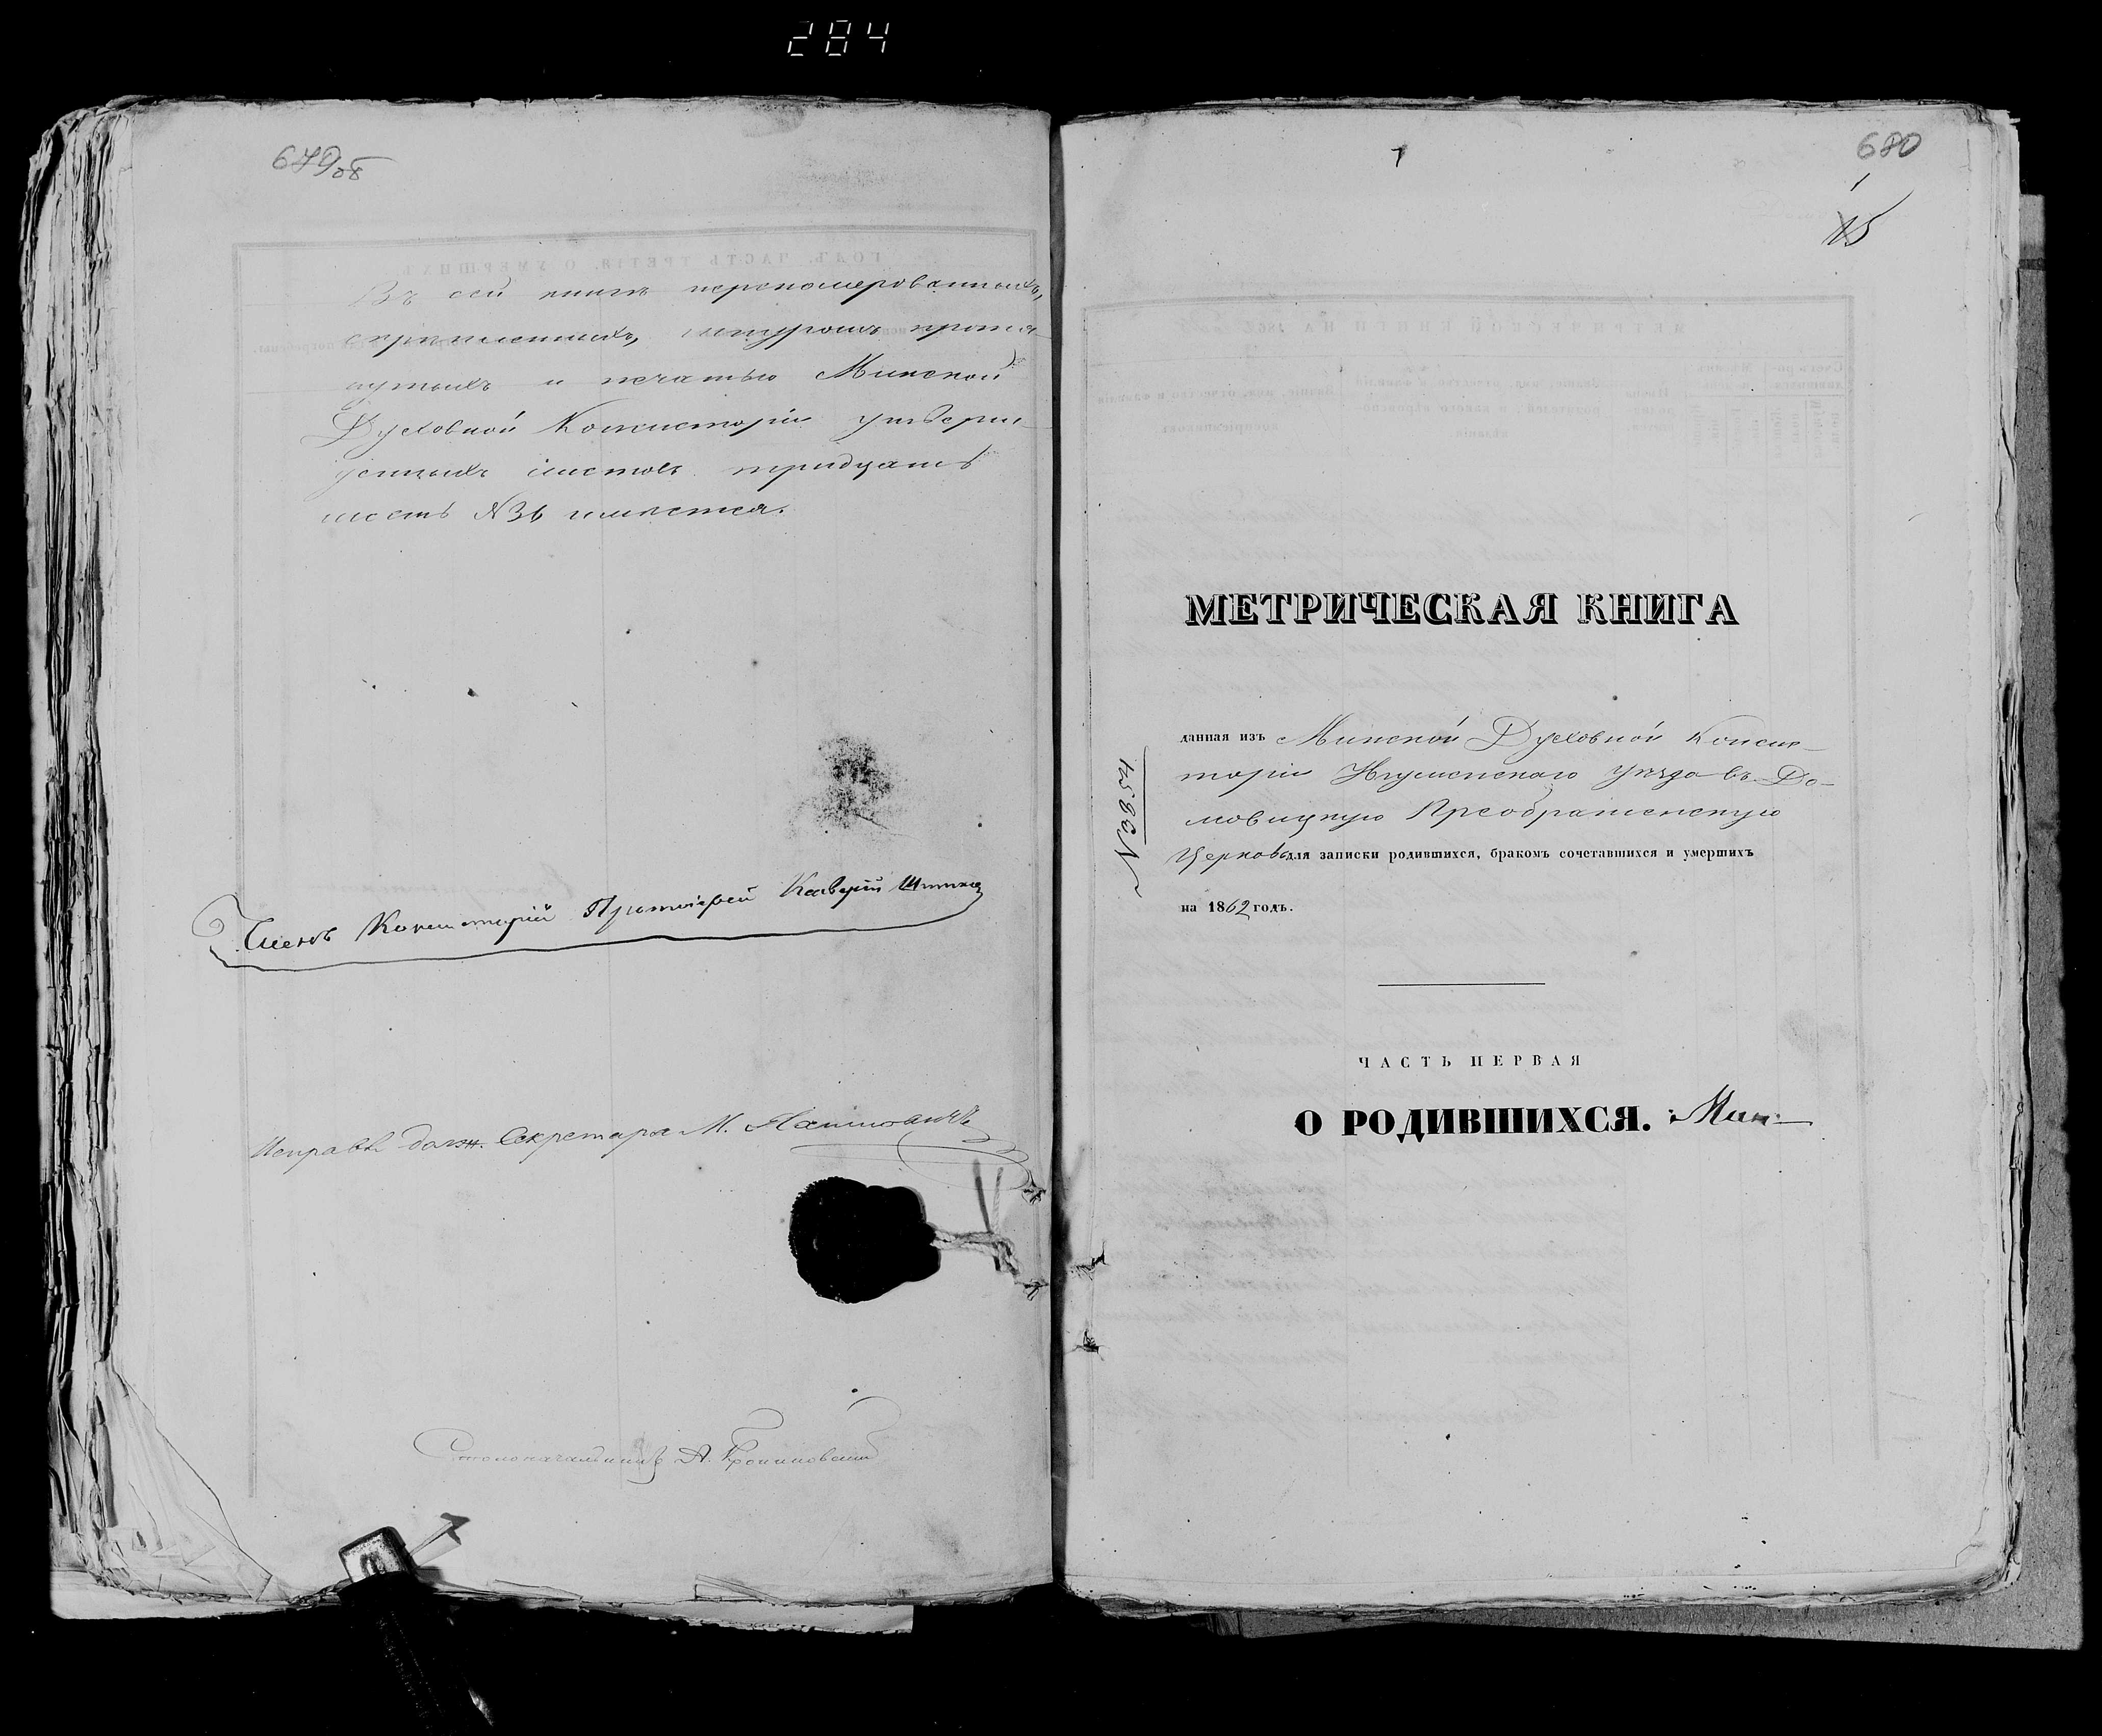 284
679об
Въ сей книгѣ перенумерованныхъ,
скрѣпленныхъ, шнуромъ протя-
нутыхъ и печатью Минской
Духовной Консисторіи утверж-
денныхъ листовъ тридцать
шесть №36 имѣется.
Членъ Консисторіи Протоіерей
Исправл. долж. Секретаря М.
Столоначальникъ А.
680
1
15
МЕТРИЧЕСКАЯ КНИГА
данная изъ Минской Духовной Консис-
торіи Игуменскаго уѣзда въ До-
мовицкую Преображенскую
Церковь для записки родившихся, бракомъ сочетавшихся и умершихъ
на 1862 годъ.
ЧАСТЬ ПЕРВАЯ
О РОДИВШИХСЯ. Мин-